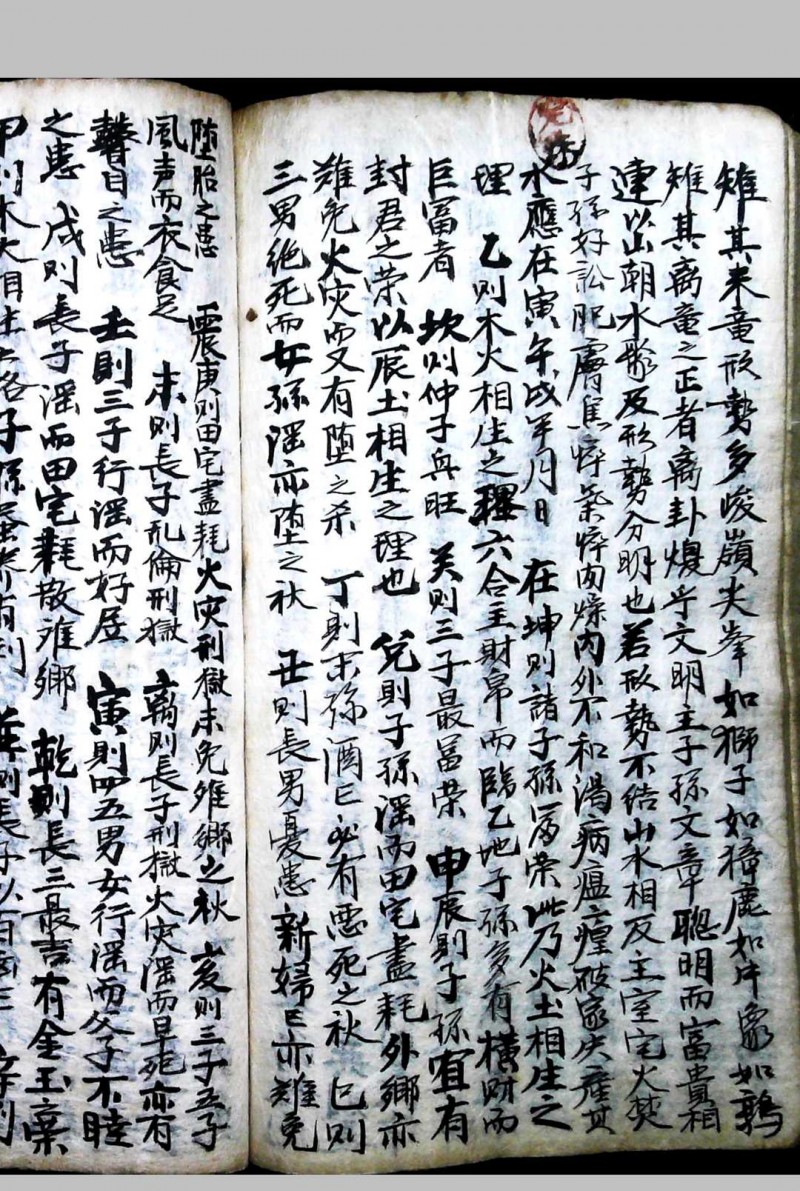 雉其来竜形勢多峻嶺尖峯如獅子如獐鹿如牛象如鶉
雉其离竜之正者离卦煥乎文明主子孫文章聰明而富貴相
連以山朝水聚及形勢分明也若形勢不結山水相反主室宅火焚
子孫好訟肥膚焦悴葉悴肉燥内外不和渴病瘟瘟破家失産其
水應在寅午戌年月日 在坤則諸子孫富荣此乃火土相生之
理 乙則木火相生之理六合主財帛而臨乙地子孫多有橫財而
巨冨者 坎則仲子兵旺 癸則三子最冨荣 申辰則子孫宜有
封君之荣以辰土相生之理也 兌則子孫滛而田宅盡耗外鄉亦
難免火灾而又有堕之杀 丁則末孫酒亡必有惡死之秋 巳則
三男绝死而女孫滛亦堕之秋 丑則長男憂患新婦亡亦難免
堕胎之患 震庚則田宅盡耗火灾刑獄未免離鄉之秋 亥則三子五子
風声而衣食足 未則長子乱倫刑獄 离則長子刑獄火灾滛而早死亦有
瞽目之患 壬則三子行滛而好居 寅則四五男女行滛而父子不睦
之患 戌則長子滛而田宅耗散離鄉 乾則長三最吉有金玉棄
甲則木火相生之 子孫